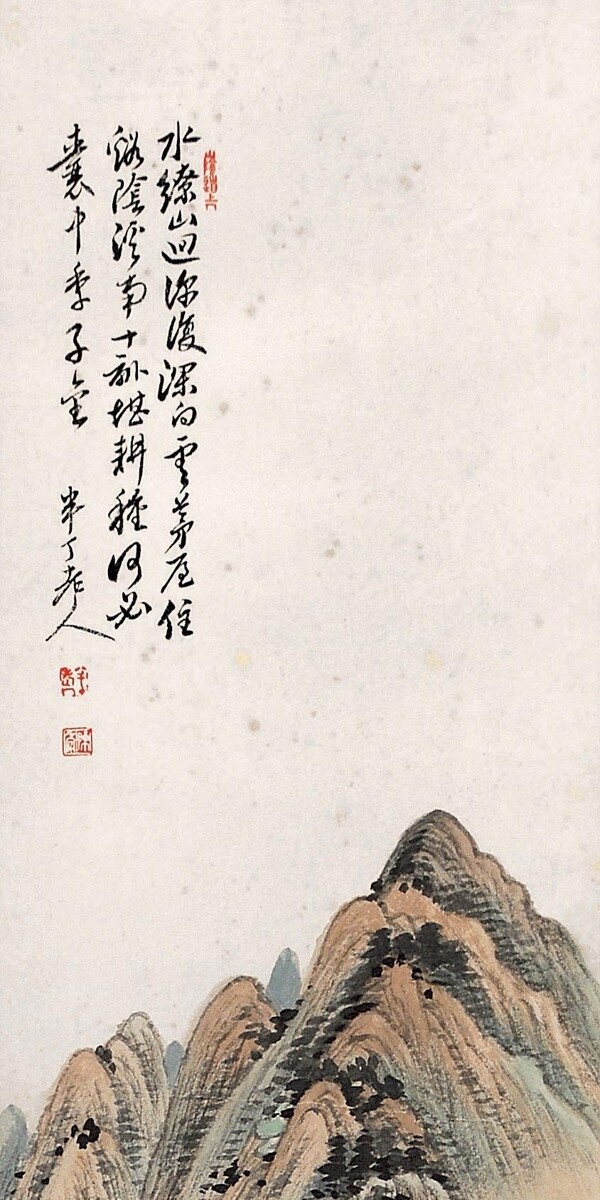 水繚山迴深復深白雲茅屋住
谿陰溪南十畝堪耕種何必
囊中季子金 半丁老人